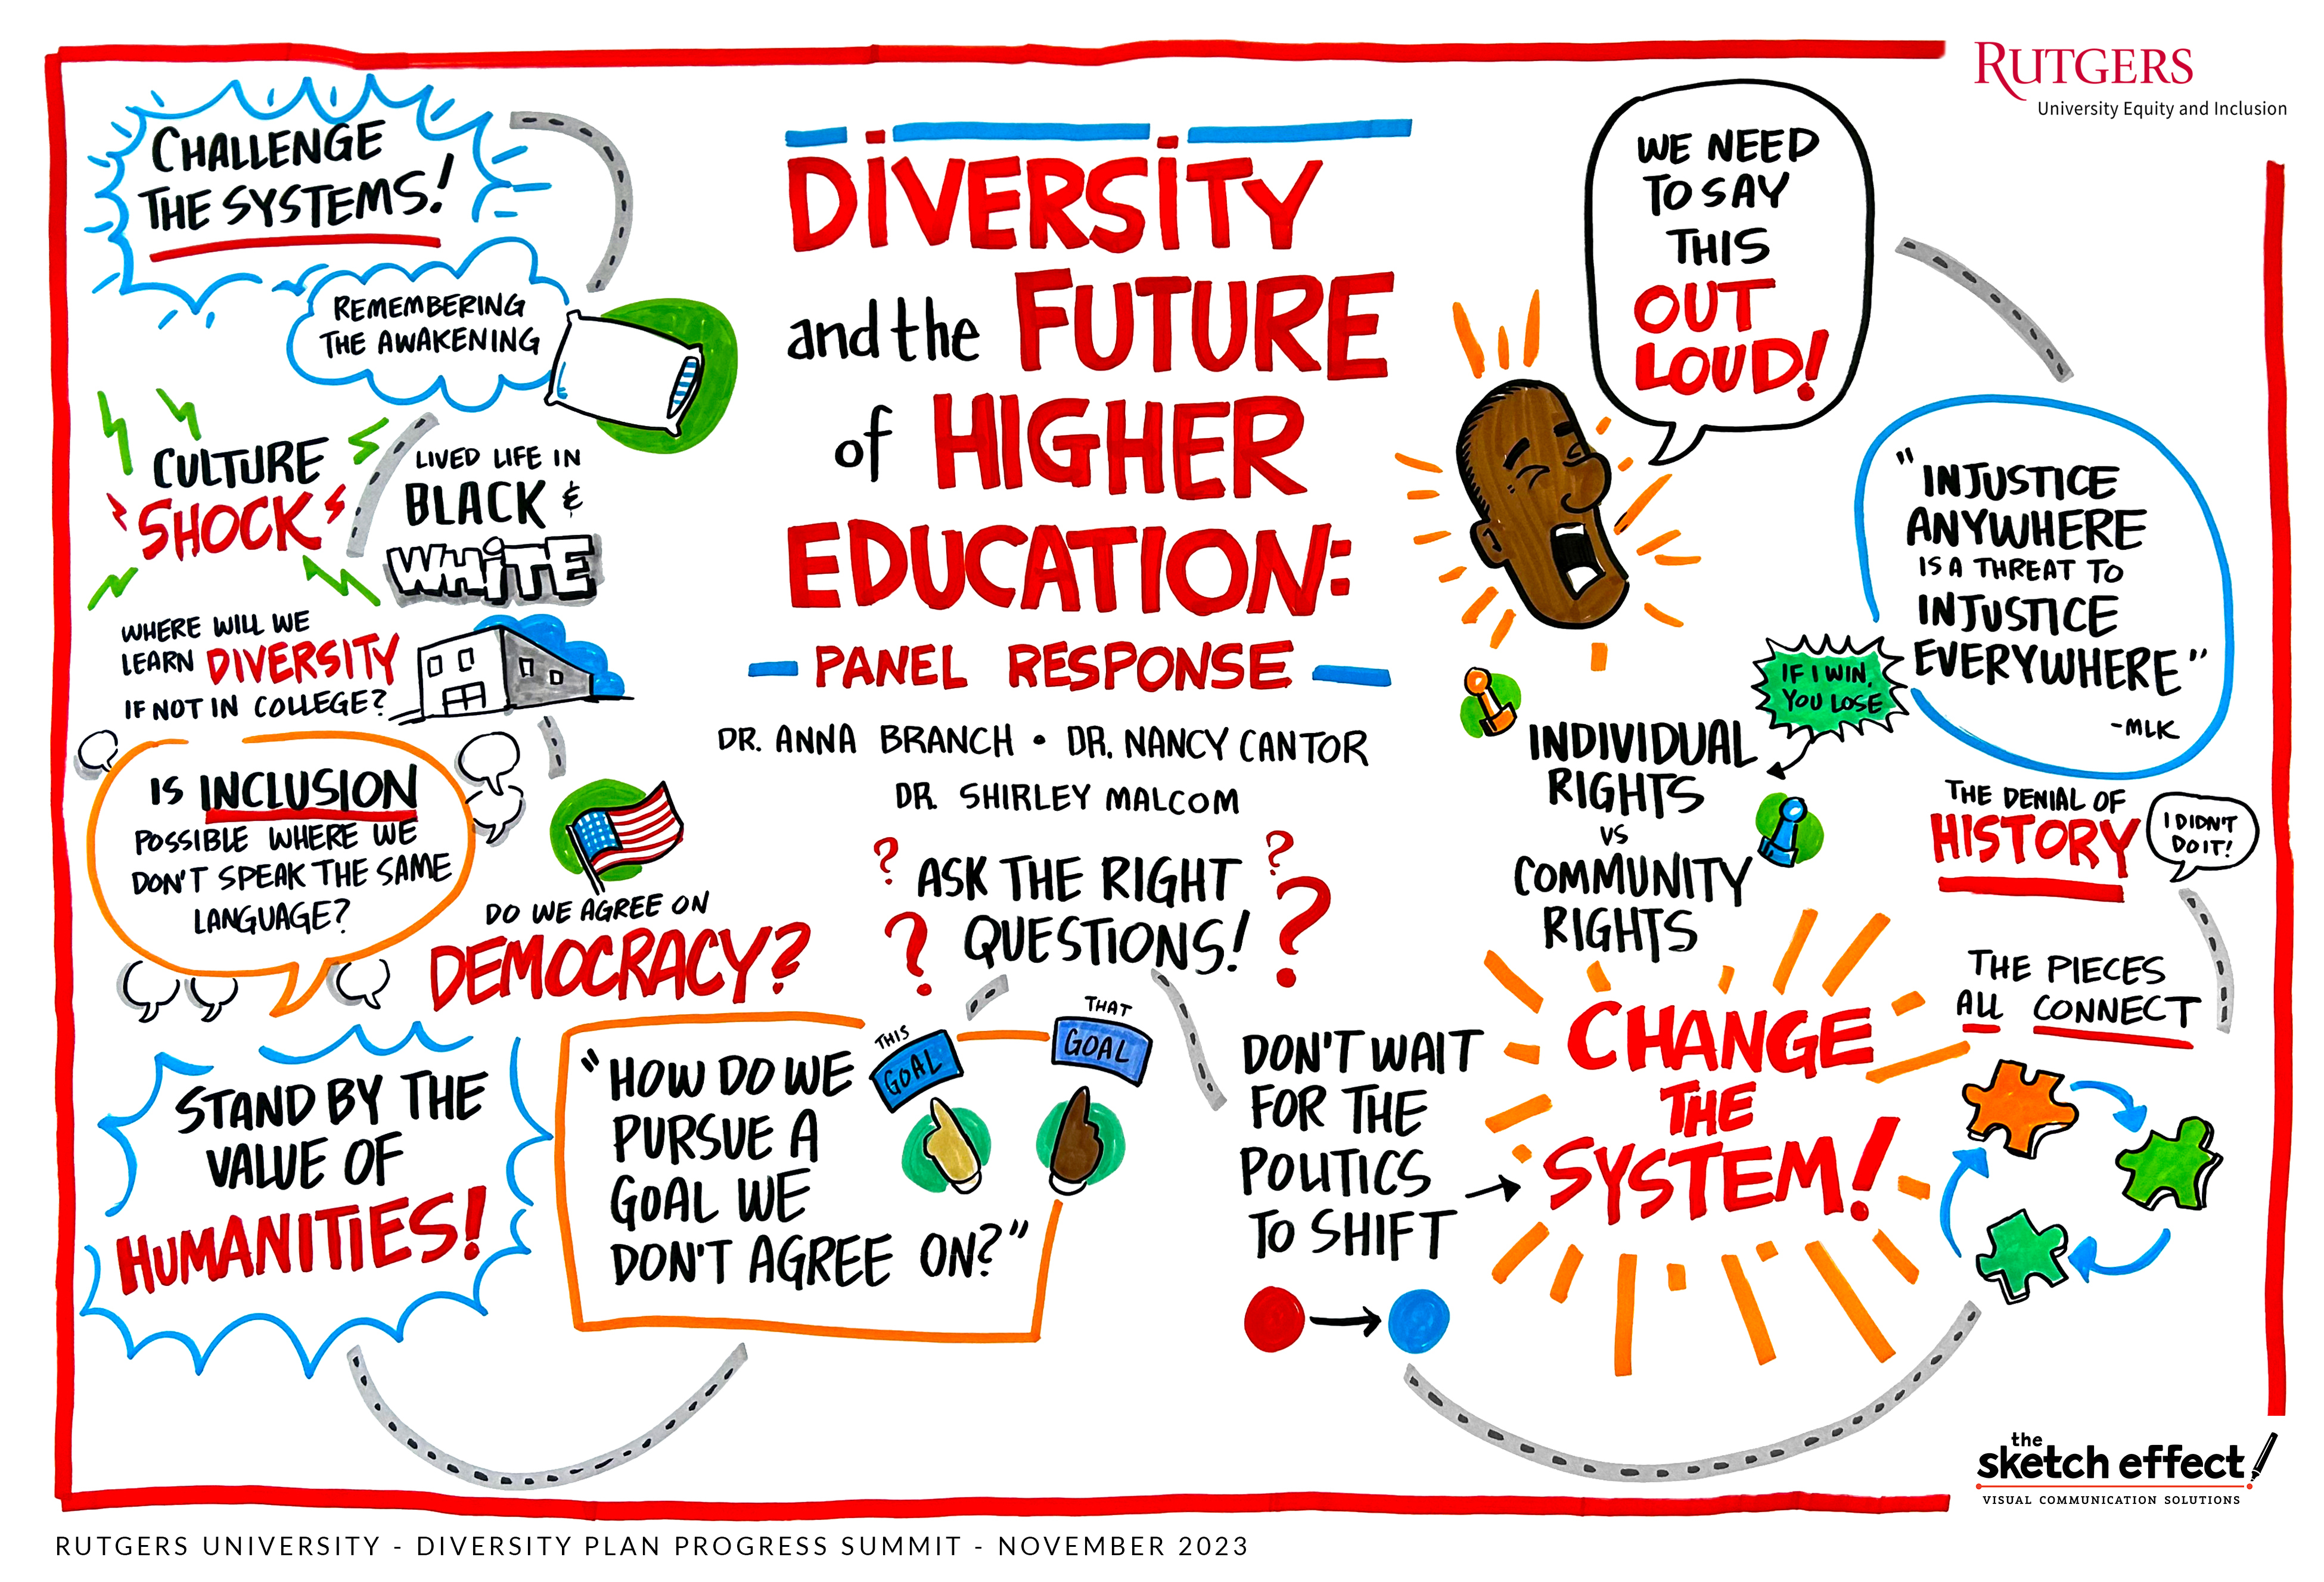 RUTGERS
University Equity and Inclusion
CHALLENGE
THE SYSTEMS!
REMEMBERING
THE AWAKENING
CULTURE
SHOCK
LIVED LIFE IN
BLACK &
WHITE
WHERE WILL WE
LEARN DIVERSITY
IF NOT IN COLLEGE?
IS INCLUSION
POSSIBLE WHERE WE
DON'T SPEAK THE SAME
LANGUAGE?
DO WE AGREE ON
DEMOCRACY?
STAND BY THE
VALUE OF
HUMANITIES!
DIVERSITY
and the FUTURE
of HIGHER
EDUCATION:
PANEL RESPONSE
DR. ANNA BRANCH • DR. NANCY CANTOR
DR. SHIRLEY MALCOM
? ASK THE RIGHT ?
? QUESTIONS! ?
"HOW DO WE
PURSUE A
GOAL WE
DON'T AGREE ON?"
THIS
GOAL
THAT
GOAL
WE NEED
TO SAY
THIS
OUT
LOUD!
"INJUSTICE
ANYWHERE
IS A THREAT TO
INJUSTICE
EVERYWHERE"
-MLK
IF I WIN,
YOU LOSE
INDIVIDUAL
RIGHTS
VS
COMMUNITY
RIGHTS
THE DENIAL OF
HISTORY
I DIDN'T
DO IT!
DON'T WAIT
FOR THE
POLITICS
TO SHIFT
CHANGE
THE
SYSTEM!
THE PIECES
ALL CONNECT
the
sketch effect
VISUAL COMMUNICATION SOLUTIONS
RUTGERS UNIVERSITY - DIVERSITY PLAN PROGRESS SUMMIT - NOVEMBER 2023